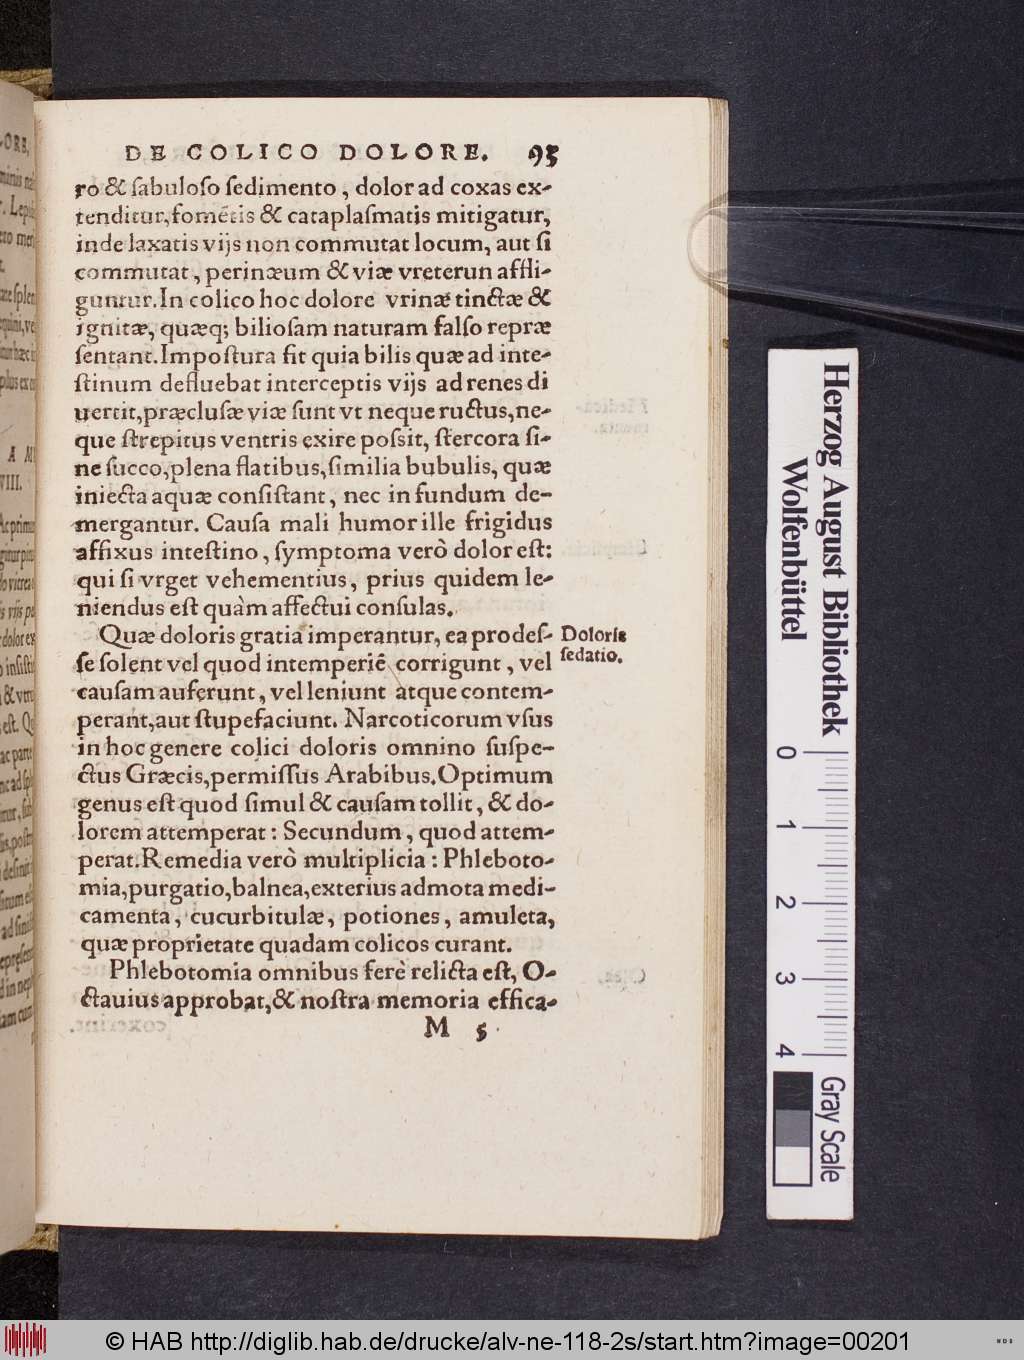 DE COLICO DOLORE. 95
ro & ſabuloſo ſedimento, dolor ad coxas ex-
tenditur, fomētis & cataplaſmatis mitigatur,
inde laxatis vijs non commutat locum, aut ſi
commutat, perinæum & viæ vreterun affli-
guntur. In colico hoc dolore vrinæ tinctæ &
ignitæ, quæq; bilioſam naturam falſo repræ
ſentant. Impoſtura fit quia bilis quæ ad inte-
ſtinum defluebat interceptis vijs ad renes di
uertit, præcluſæ viæ ſunt vt neque ructus, ne-
que ſtrepitus ventris exire poſsit, ſtercora ſi-
ne ſucco, plena flatibus, ſimilia bubulis, quæ
iniecta aquæ conſiſtant, nec in fundum de-
mergantur. Cauſa mali humor ille frigidus
affixus inteſtino, ſymptoma verò dolor eſt:
qui ſi vrget vehementius, prius quidem le-
niendus eſt quàm affectui conſulas.
Quæ doloris gratia imperantur, ea prodeſ-
ſe ſolent vel quod intemperiē corrigunt, vel
cauſam auferunt, vel leniunt atque contem-
perant, aut ſtupefaciunt. Narcoticorum vſus
in hoc genere colici doloris omnino ſuſpe-
ctus Græcis, permiſſus Arabibus. Optimum
genus eſt quod ſimul & cauſam tollit, & do-
lorem attemperat: Secundum, quod attem-
perat. Remedia verò multiplicia: Phleboto-
mia, purgatio, balnea, exterius admota medi-
camenta, cucurbitulæ, potiones, amuleta,
quæ proprietate quadam colicos curant.
Phlebotomia omnibus ferè relicta eſt, O-
ctauius approbat, & noſtra memoria effica-
M 5
Doloris
ſedatio.
Herzog August Bibliothek
Wolfenbüttel
0 1 2 3 4
Gray Scale
© HAB http://diglib.hab.de/drucke/alv-ne-118-2s/start.htm?image=00201